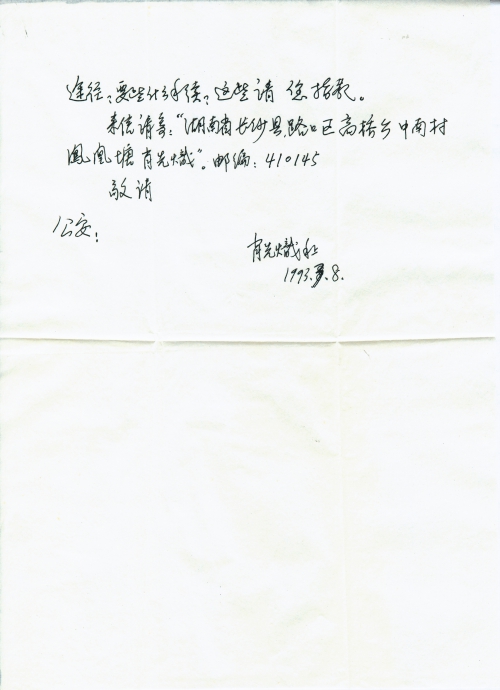 途径?要些什么手续?这些请您指教。
来信请寄:“湖南省长沙县路口区高桥乡中南村
凤凰塘肖先炽”。邮编:410145
敬请
公安!
肖先炽
1993.8.